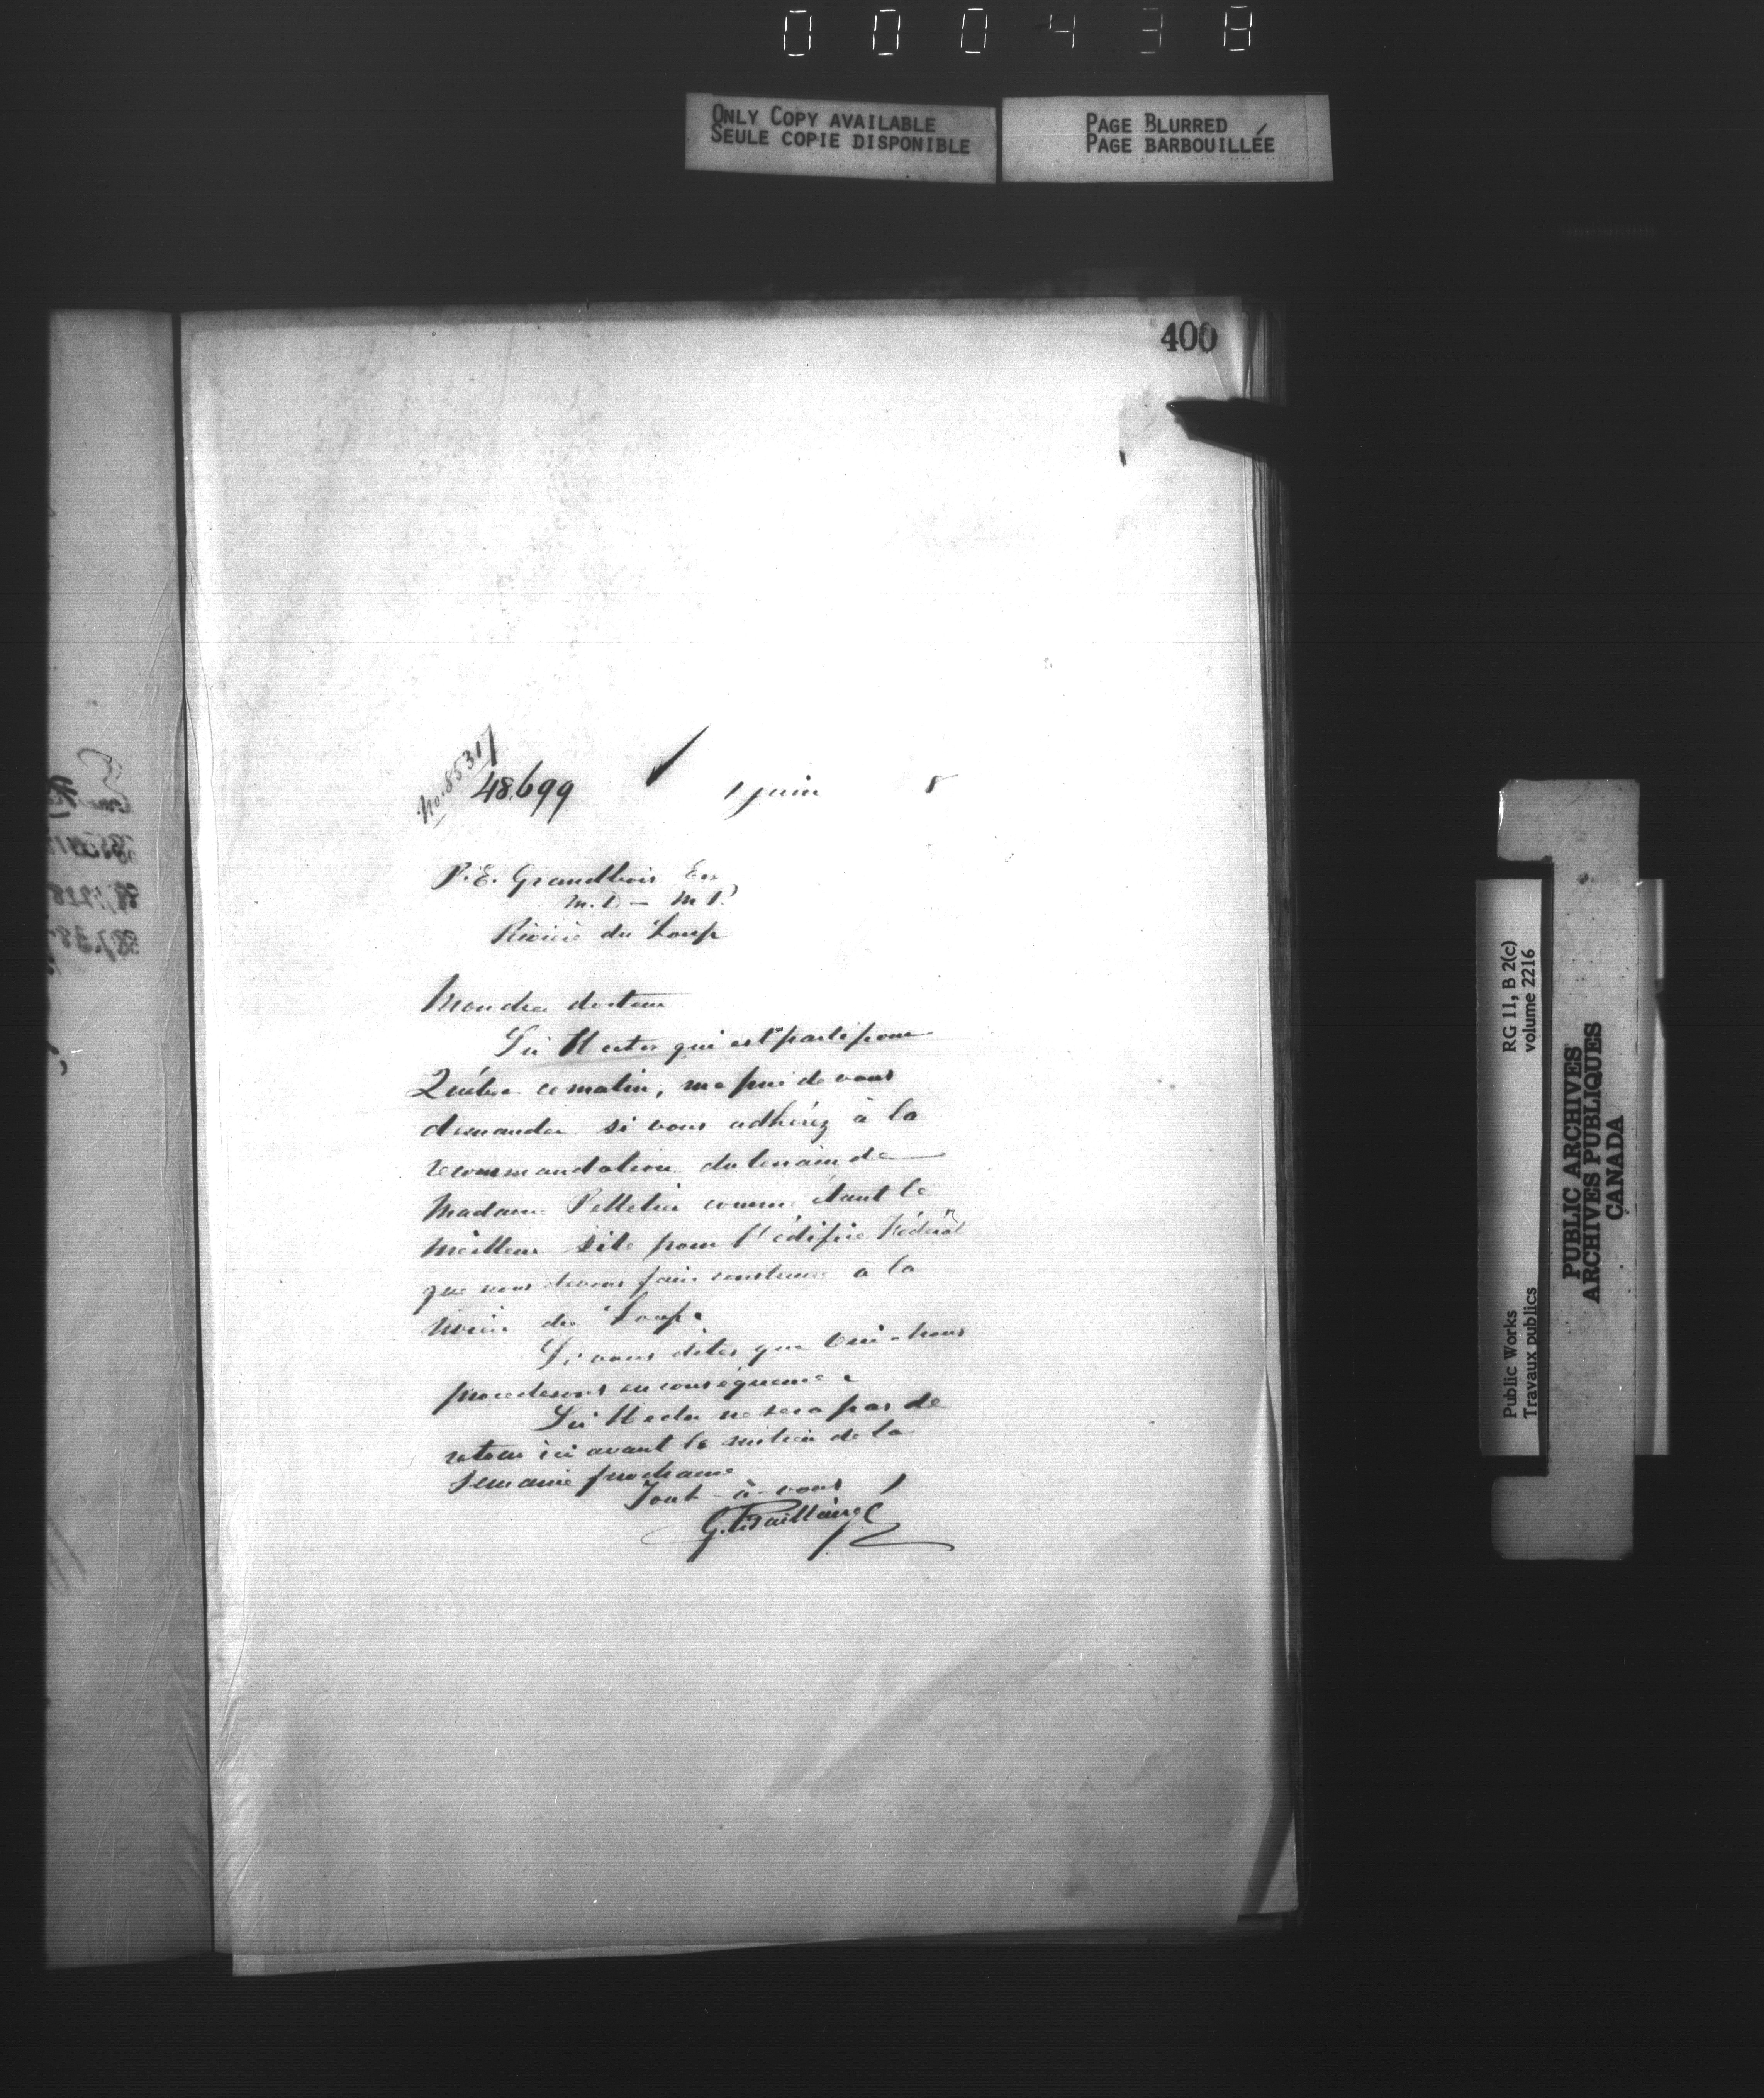 000438
ONLY COPY AVAILABLE
SEULE COPIE DISPONIBLE
PAGE BLURRED
PAGE BARBOUILLÉE
400
No. 85317
48699
1 juin 8
P. E. Grandbois Ecr
M.D - M.P.
Rivière du Loup
Mon cher docteur
Sir Hector qui est parti pour
Québec ce matin, me prie de vous
demander si vous adhérez à la
recommandation du terrain de
Madame Pelletier comme étant le
meilleur site pour l'édifice Fédéral
que nous devons faire construire à la
Rivière du Loup.
Si vous dites que oui - nous
procederons en conséquence.
Sir Hector ne sera pas de
retour ici avant le milieu de la
semaine prochaine
Tout à vous
G. F. Baillairgé
RG 11, B 2(c)
volume 2216
Public Works
Travaux publics
PUBLIC ARCHIVES
ARCHIVES PUBLIQUES
CANADA